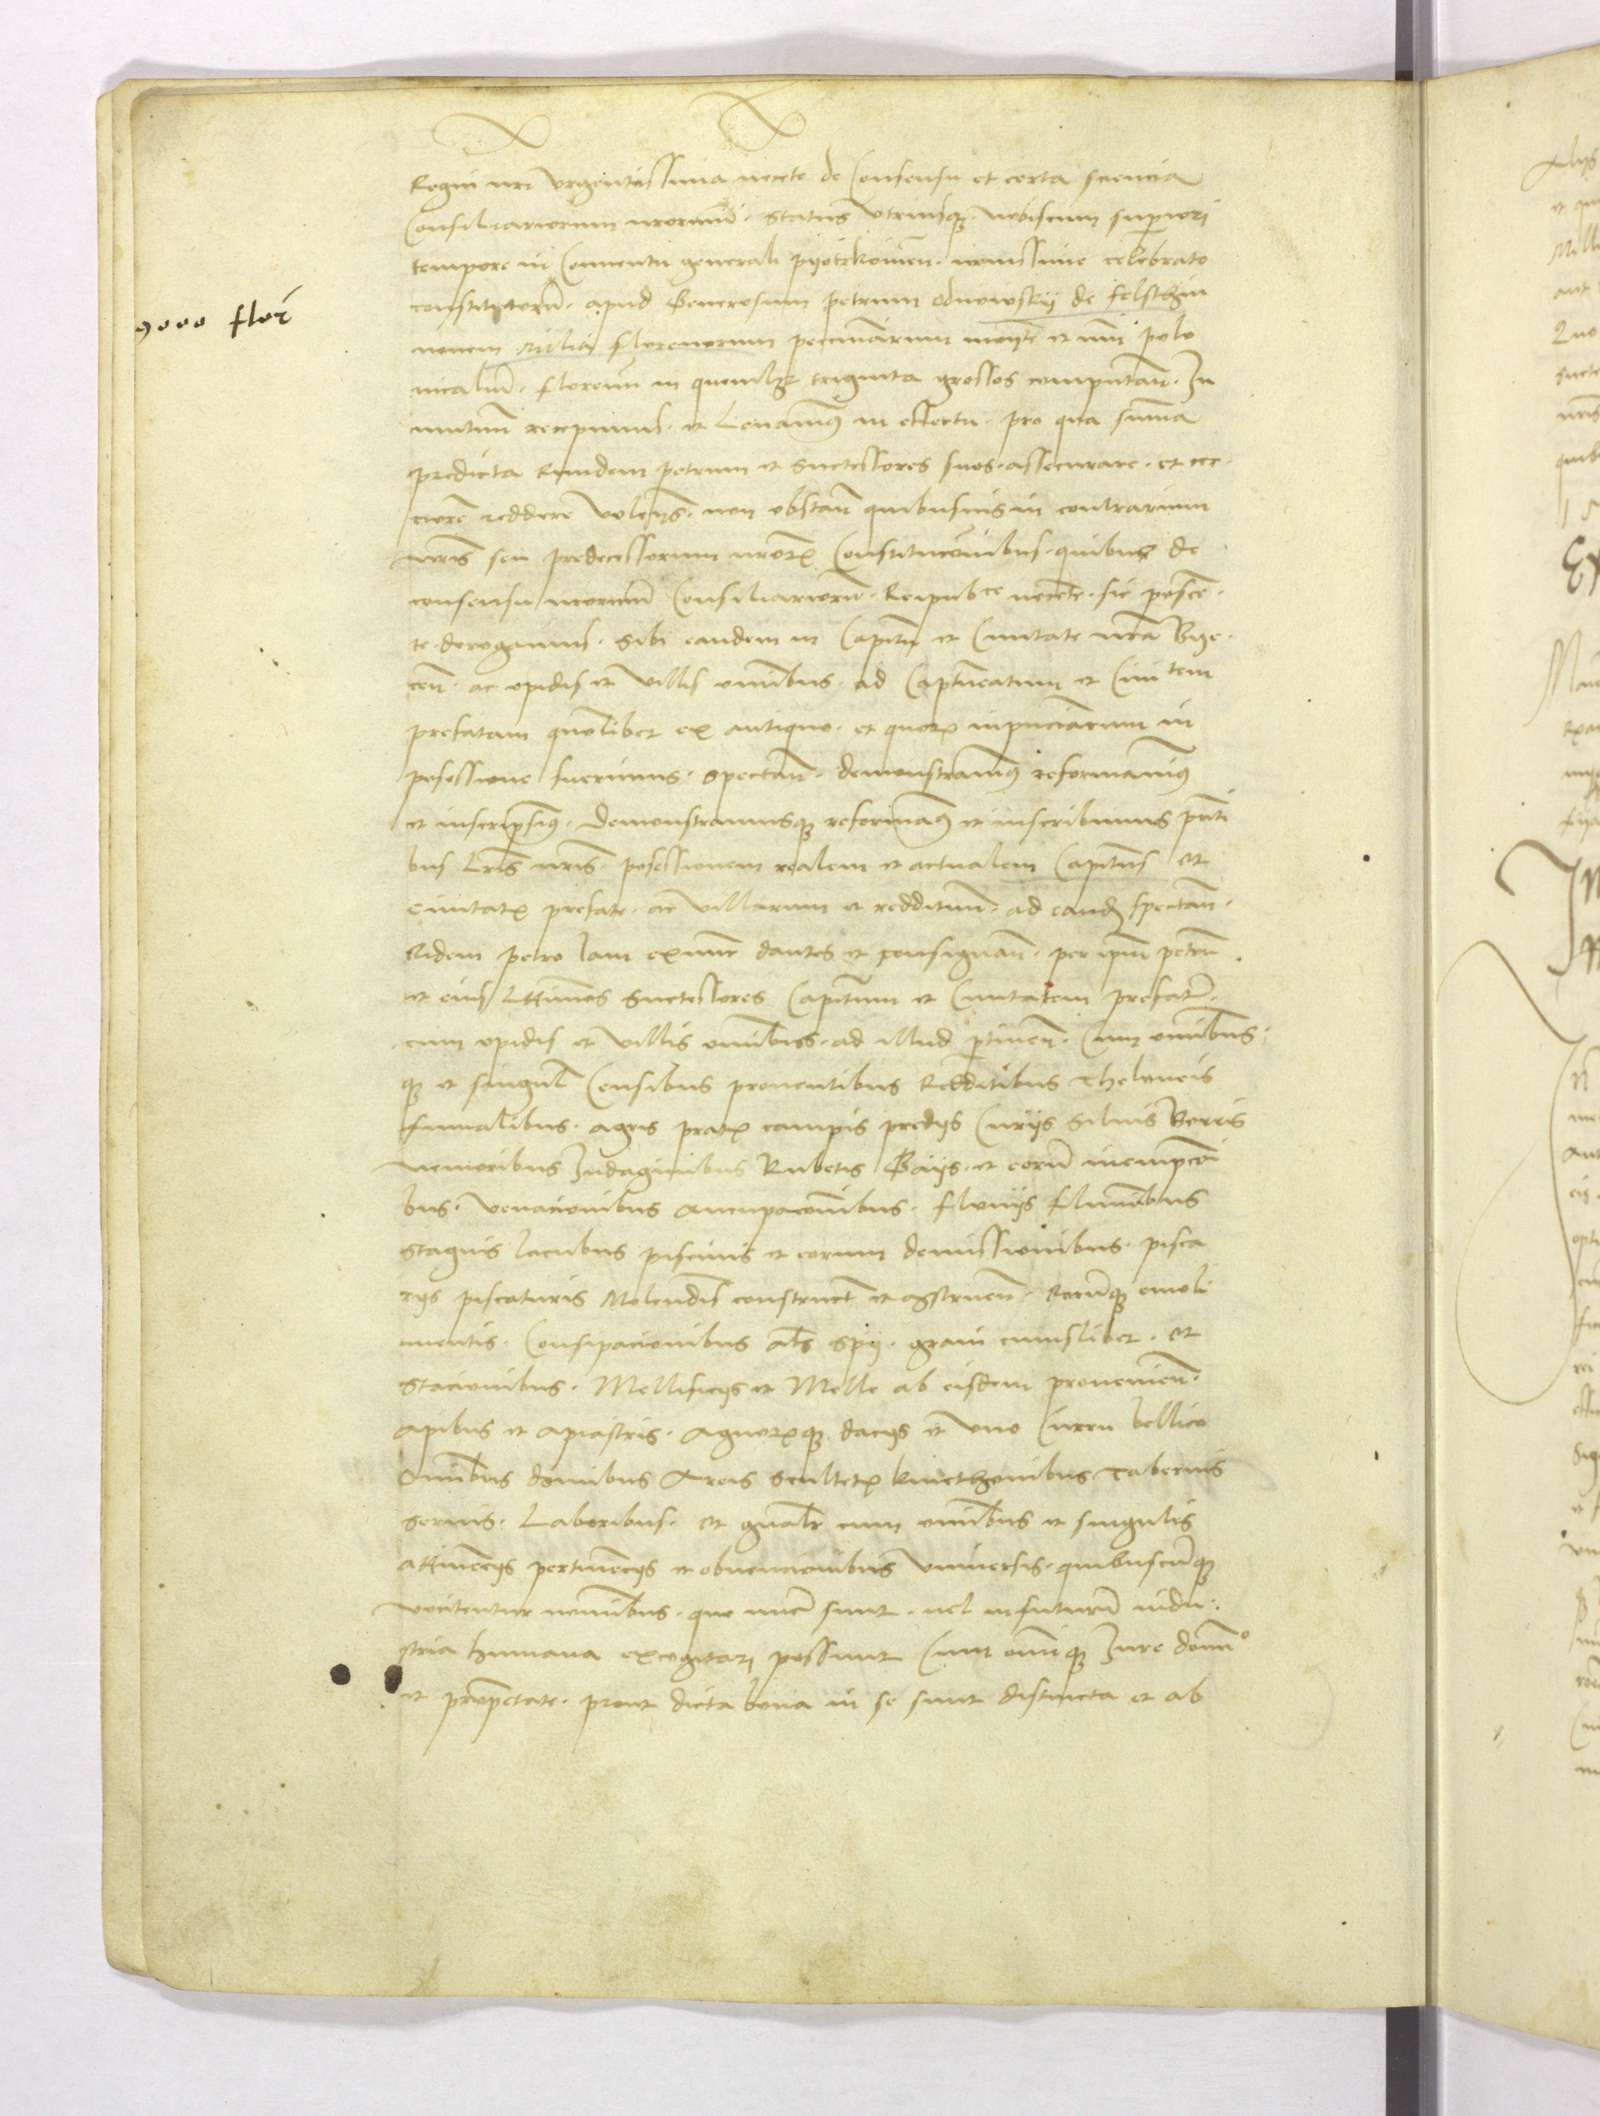 Regni nri vrgentissima necte de Consensu et certa sciencia
Consiliariorum nrorum. status vtriusq nobiscum superiori
tempore in Conuentu generali pyotrkouien. nouissime celebrato
constitutorum. apud Generosum petrum odnowskij de felsthyn
9000 flor
nouem milia florenorum pecuniarum monete et nui polo
nicaliu. florenu in quemlibet triginta grossos computan. In
mutuum recepimus. et Leuauimus in effectu. pro qua summa
predicta Eundem petrum et successores suos. assecurare. et cer
ciore reddere volentes. non obstan quibusuis in contrarium
nris seu predecessorum nrorum Constitucionibus. quibus de
consensu nrorum Consiliariorum. Reipubce necete. sic poscen
te. derogamus. sibi eandem in Capitu et Ciuitate nra
cen. ac opidis et villis omnibus. ad Captneatum et Ciuitem
prefatam quolibet ex antiquo. et quorum in
possessione fuerimus. spectan. demonstrauimus reformauimus
et inscripsimus. Demonstramusq reformamus et inscribimus pnti
bus Lris nris. possessionem realem et actualem Capitus et
ciuitatis prefate. ac villarum et reddituum. ad eand spectan.
Eidem petro Iam exnunc dantes et consignan. per ipm petrum
et eius Lttimos successores Capitum et Ciuitatem prefatam.
cum opidis et villis omnibus. ad illud ptinen. Cum omnibus
q et singul Censibus prouentibus Redditibus Theloneis
fumalibus. agris pratis campis predijs Curijs siluis Borris
nemoribus Indaginibus Rubetis Gaijs. et eorum
bus. venacionibus aucupacionibus. fluuijs fluminibus
stagnis lacubus piscinis et eorum demissionibus. pisca
rijs piscaturis Molendis construct et astruen. Eorumq emoli
mentis. Consipacionibus als spij. grani cuiuslibet. et
stacionibus. Mellificijs et Melle ab eisdem prouenien.
apibus et apiastris. Agnorumq dacijs et vno Curru bellico
Omnibus donibus Areis scultetis kmethonibus Tabernis
seruis. Laboribus. et gnalr cum omnibus et singulis
Attinencijs pertinencijs et obuencionibus vniuersis. quibuscumq
vocitentur nominibus. que nunc sunt. vel in futurum indu
stria humana excogitari possunt Cum omniq Iure domo
et proprietate. prout dicta bona in se sunt distincta et ab